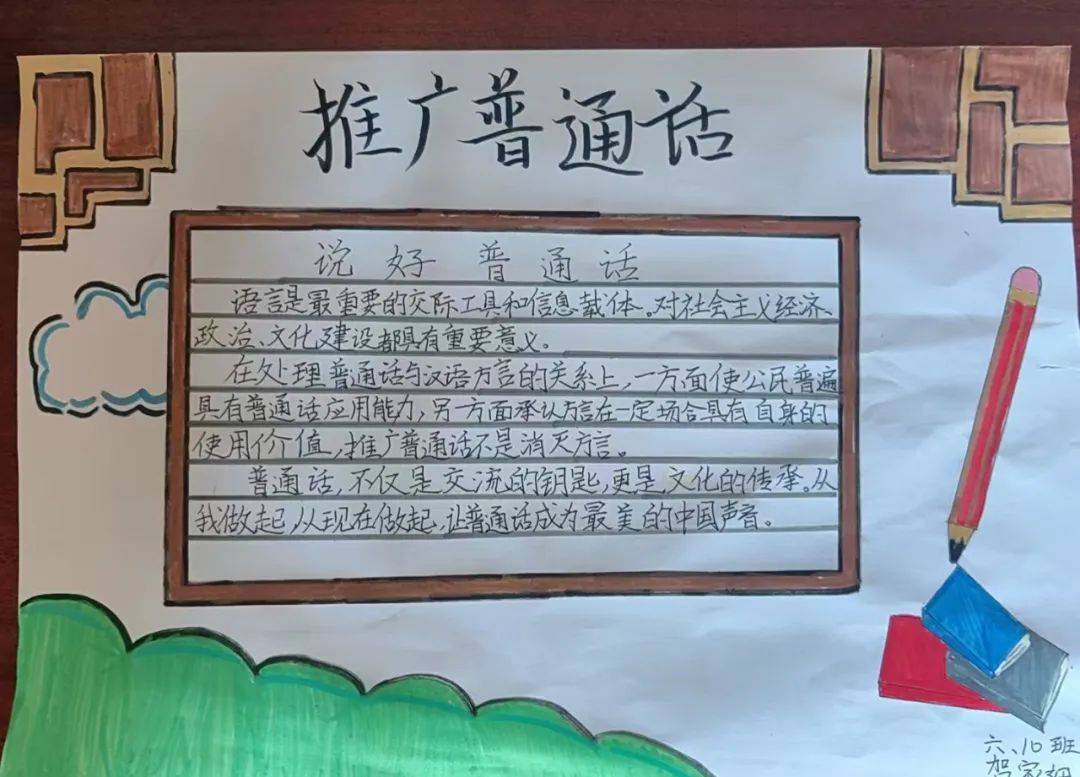 推广普通话
说好普通话
语言是最重要的交际工具和信息载体。对社会主义经济、
政治、文化建设都具有重要意义。
在处理普通话与汉语方言的关系上，一方面使公民普遍
具有普通话应用能力，另一方面承认方言在一定场合具有自身的
使用价值，推广普通话不是消灭方言。
普通话，不仅是交流的钥匙，更是文化的传承。从
我做起，从现在做起，让普通话成为最美的中国声音。
六、10班